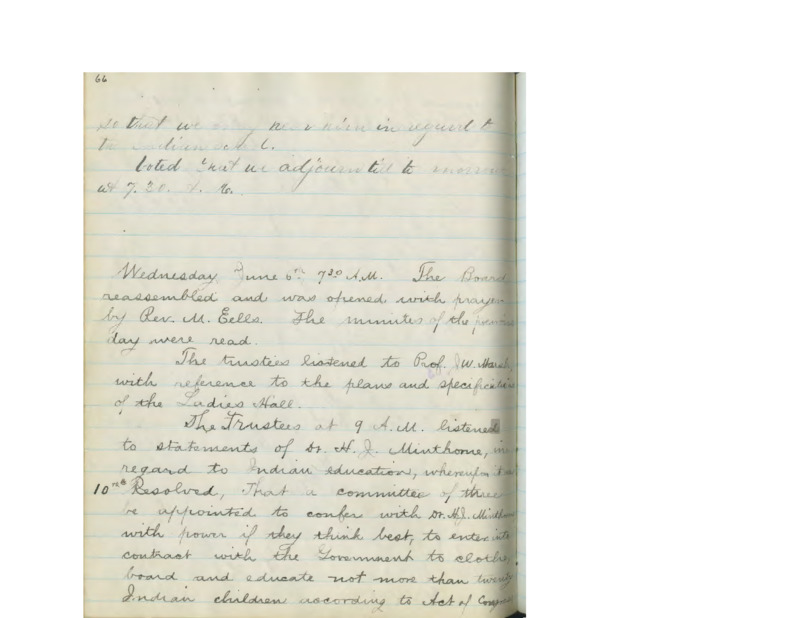 66
so that we may hear him in regard to
the Indian school.
Voted that we adjourn till to morrow
at 7.30. A. M.
Wednesday June 6th 7 30 A.M. The Board
reassembled and was opened with prayer
by Rev. M. Eells. The minutes of the previous
day were read.
The trustees listened to Prof. J.W. Marsh,
with reference to the plans and specifications
of the Ladies Hall.
The Trustees at 9 A.M. listened
to statements of Dr. H. J. Minthorne, in
regard to Indian education, whereupon it was
10 Resolved, That a committee of three
be appointed to confer with Dr. H.J. Minthorne
with power if they think best, to enter into
contract with the Government to clothe,
board and educate not more than twenty
Indian children according to Act of Congress